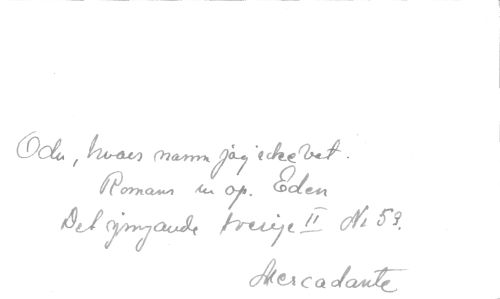 O du, hvars namn jag icke vet.
Romans ur op. Eden
Det sjungande Sverige II Nr 59.
Mercadante